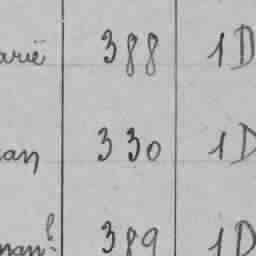 arië 388 1D
an 330 1D
nan? 389 1D